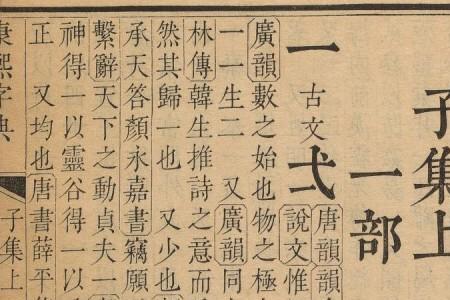 子集上
一部
一 古文 弌 唐韻韻
說文惟
廣韻數之始也物之極
一一生二 又廣韻同
林傳韓生推詩之意而
然其歸一也 又少也
承天答顏永嘉書竊願
繫辭天下之動貞夫一
神得一以靈谷得一以
正 又均也唐書薛平
康熙字典 子集上